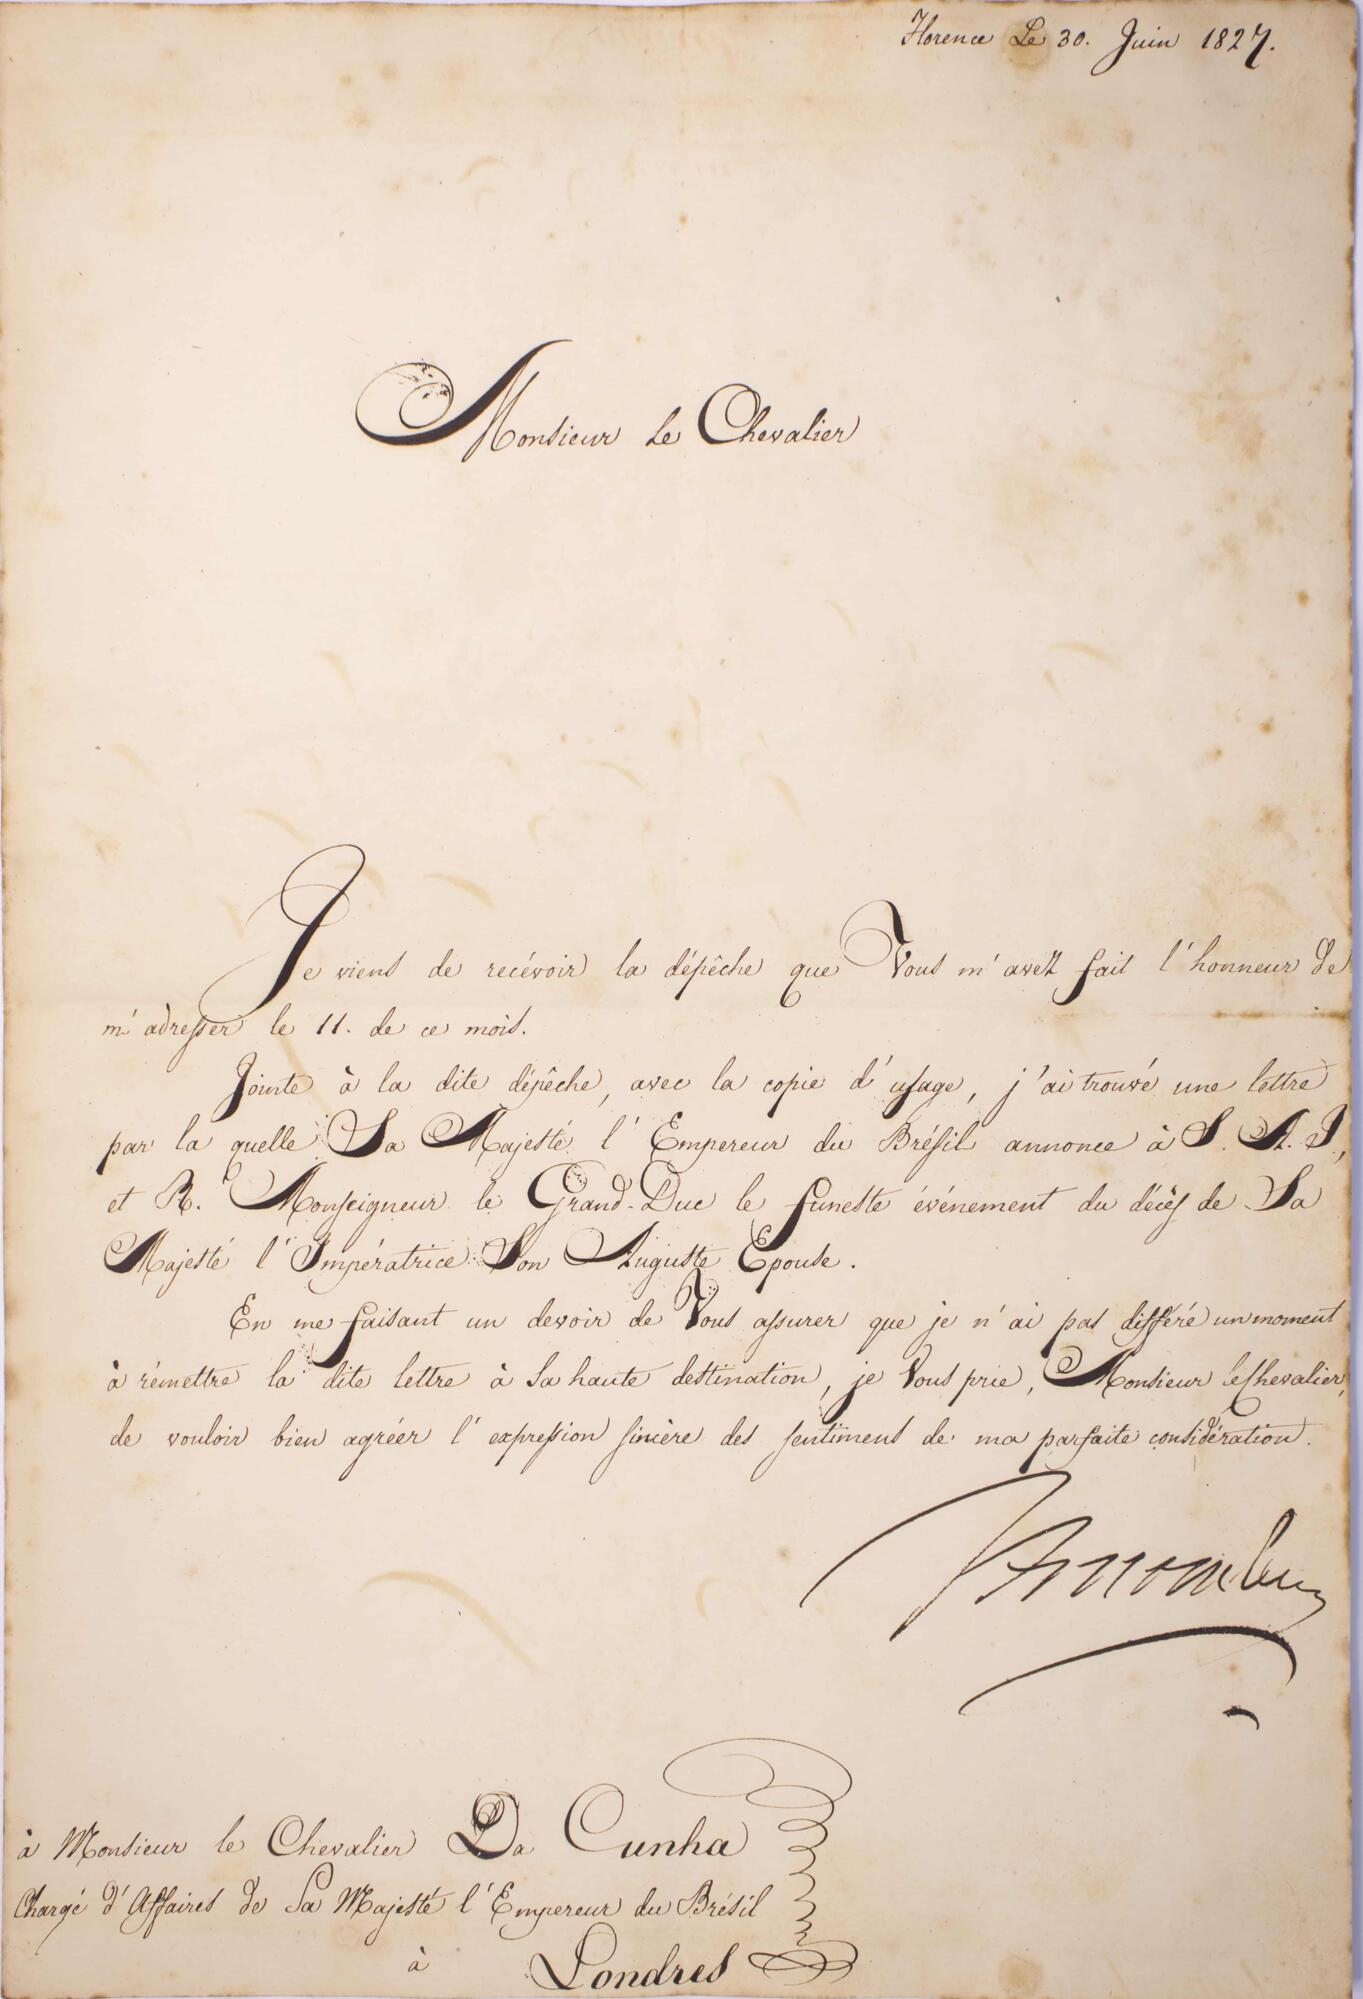 Florence Le 30. Juin 1827.
Monsieur Le Chevalier
Je viens de recévoir la dépêche que Vous m'avez fait l'honneur de
m'adresser le 11. de ce mois.
Jointe à la dite dépêche, avec la copie d'usage, j'ai trouvé une lettre
par la quelle Sa Majesté l'Empereur du Brésil annonce à S. A. I.,
et R. Monseigneur le Grand-Duc le funeste événement du décès de Sa
Majesté l'Impératrice Son Auguste Epouse.
En me faisant un devoir de Vous assurer que je n'ai pas différé un moment
à rémettre la dite lettre à Sa haute destination, je Vous prie, Monsieur le Chevalier,
de vouloir bien agréer l'expression sincère des sentimens de ma parfaite considération.
à Monsieur le Chevalier Da Cunha
Chargé d'Affaires de Sa Majesté l'Empereur du Brésil
à Londres